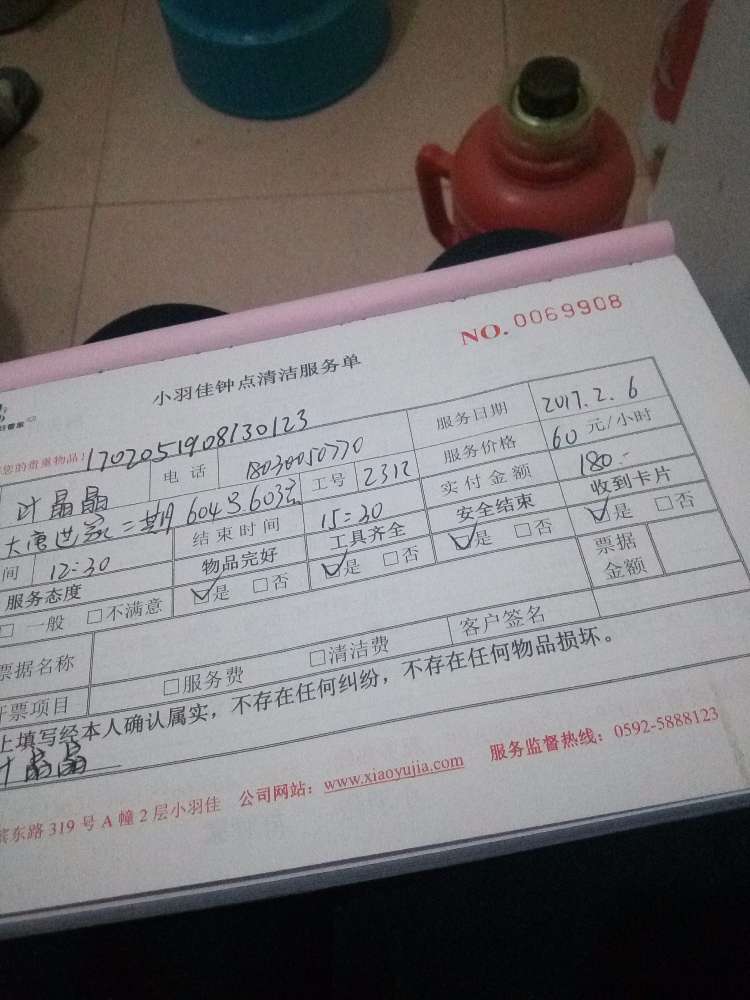 NO. 0069908
小羽佳钟点清洁服务单
您的贵重物品! 1702051908130123
叶晶晶 电话 18030050770 服务日期 2017.2.6
604号603室 工号 2312 服务价格 60 元/小时
间 12:30 结束时间 15:30 实付金额 180.-
服务态度 物品完好 工具齐全 安全结束 收到卡片
□一般 □不满意 ☑是 □否 ☑是 □否 ☑是 □否 ☑是 □否
票据名称 票据金额
开票项目 □服务费 □清洁费 客户签名
上填写经本人确认属实，不存在任何纠纷，不存在任何物品损坏。
叶晶晶
滨东路 319 号 A 幢 2 层小羽佳 公司网站：www.xiaoyujia.com 服务监督热线：0592-5888123